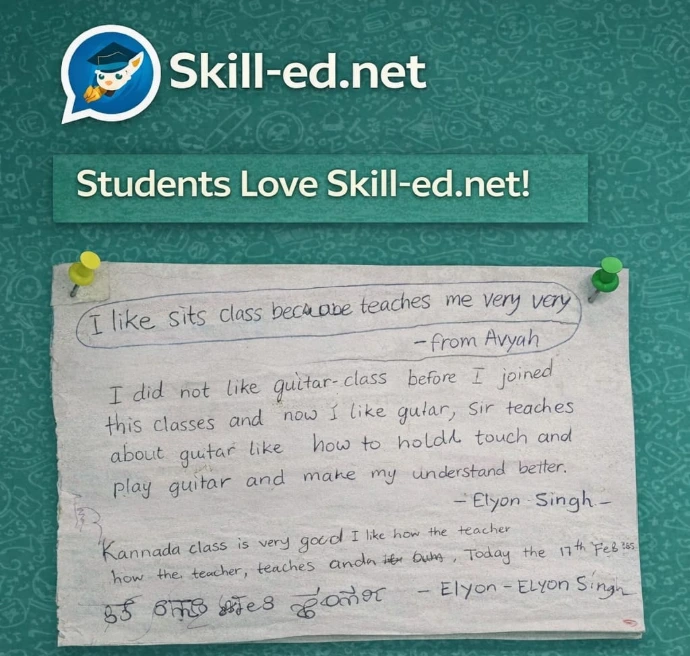 Skill-ed.net
Students Love Skill-ed.net!
I like sits class becauabe teaches me very very
- from Avyah
I did not like guitar-class before I joined
this classes and now I like gutar, Sir teaches
about guitar like how to holdd touch and
play guitar and make my understand better.
- Elyon Singh -
Kannada class is very good I like how the teacher
how the. teacher, teaches and . Today the 17th Feb
- Elyon - ELyon Singh